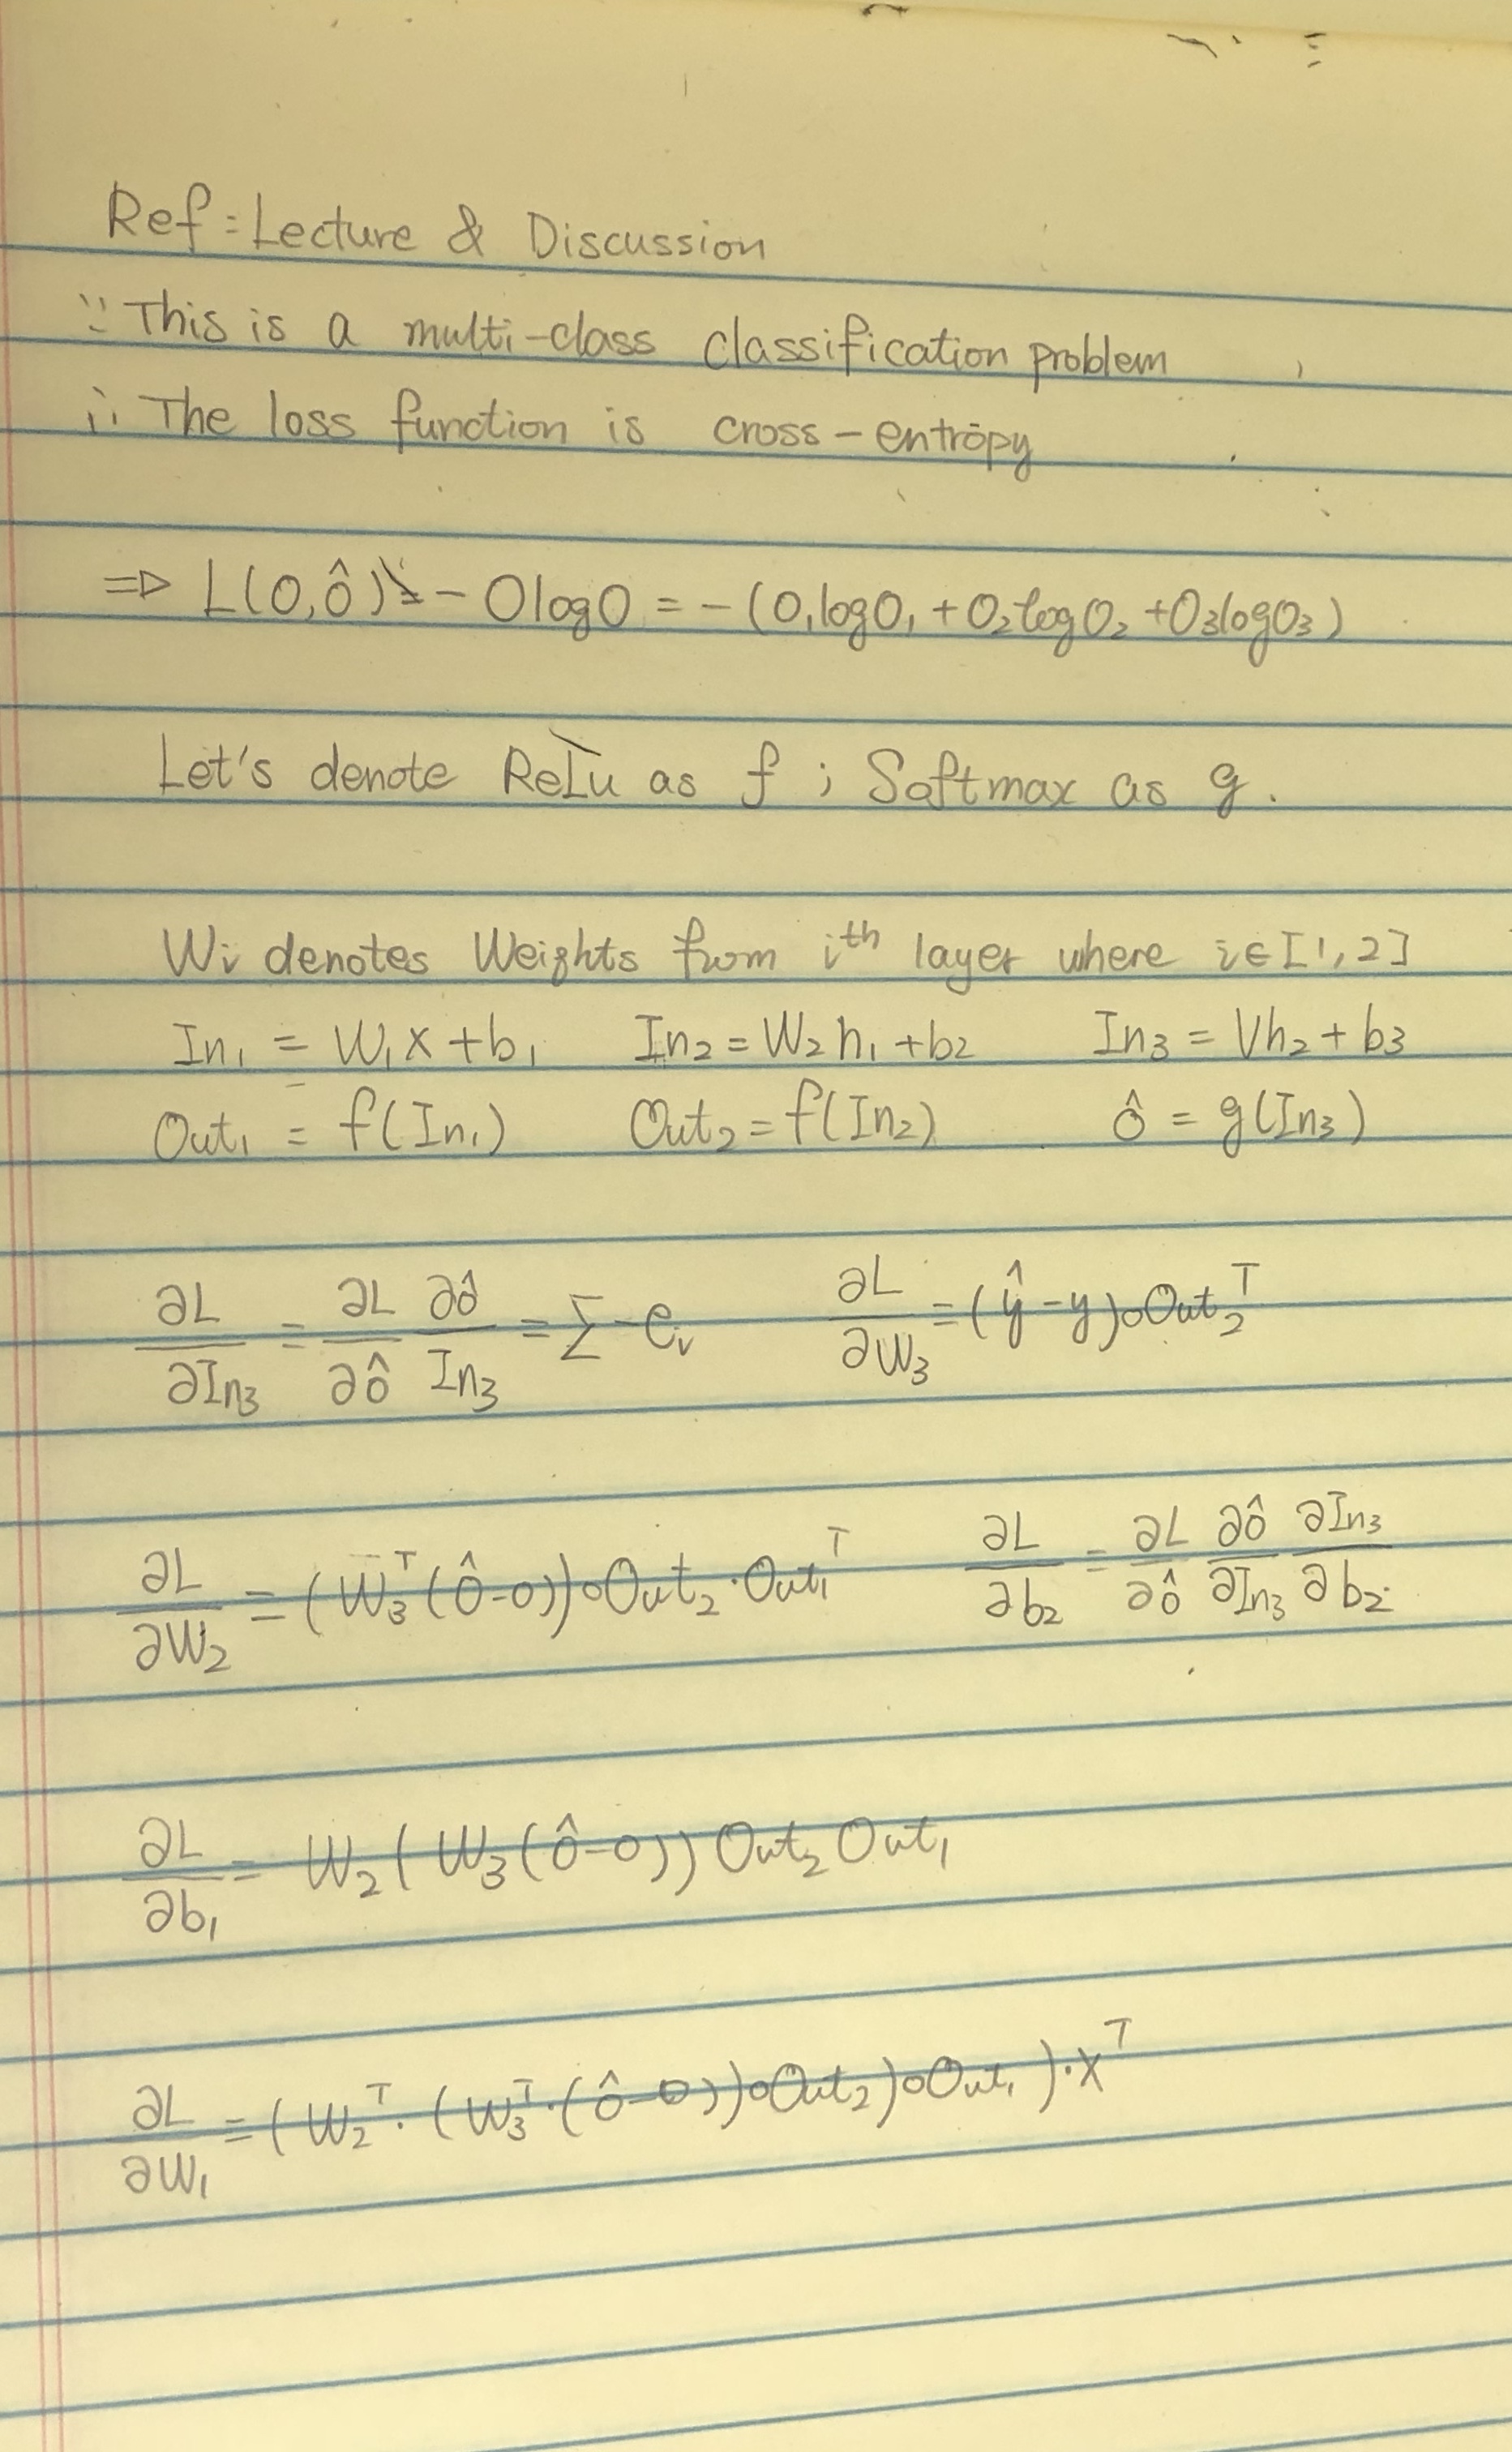 Ref: Lecture & Discussion
∵ This is a multi-class classification problem
∴ The loss function is cross-entropy
⇒ L(O,ô) = - OlogO = -(O₁logO₁ + O₂logO₂ + O₃logO₃)
Let's denote ReLu as f ; Softmax as g.
Wi denotes Weights from iᵗʰ layer where i∈[1,2]
In₁ = W₁x+b₁ In₂ = W₂h₁+b₂ In₃ = Vh₂+b₃
Out₁ = f(In₁) Out₂ = f(In₂) ô = g(In₃)
∂L/∂In₃ = ∂L/∂ô ∂ô/In₃ = Σ-eᵢ ∂L/∂W₃ = (ŷ-y)∘Out₂ᵀ
∂L/∂W₂ = (W₃ᵀ(ô-o))∘Out₂·Out₁ᵀ ∂L/∂b₂ = ∂L/∂ô ∂ô/∂In₃ ∂In₃/∂b₂
∂L/∂b₁ = W₂(W₃(ô-o))Out₂Out₁
∂L/∂W₁ = (W₂ᵀ·(W₃ᵀ·(ô-o))∘Out₂)∘Out₁)·xᵀ